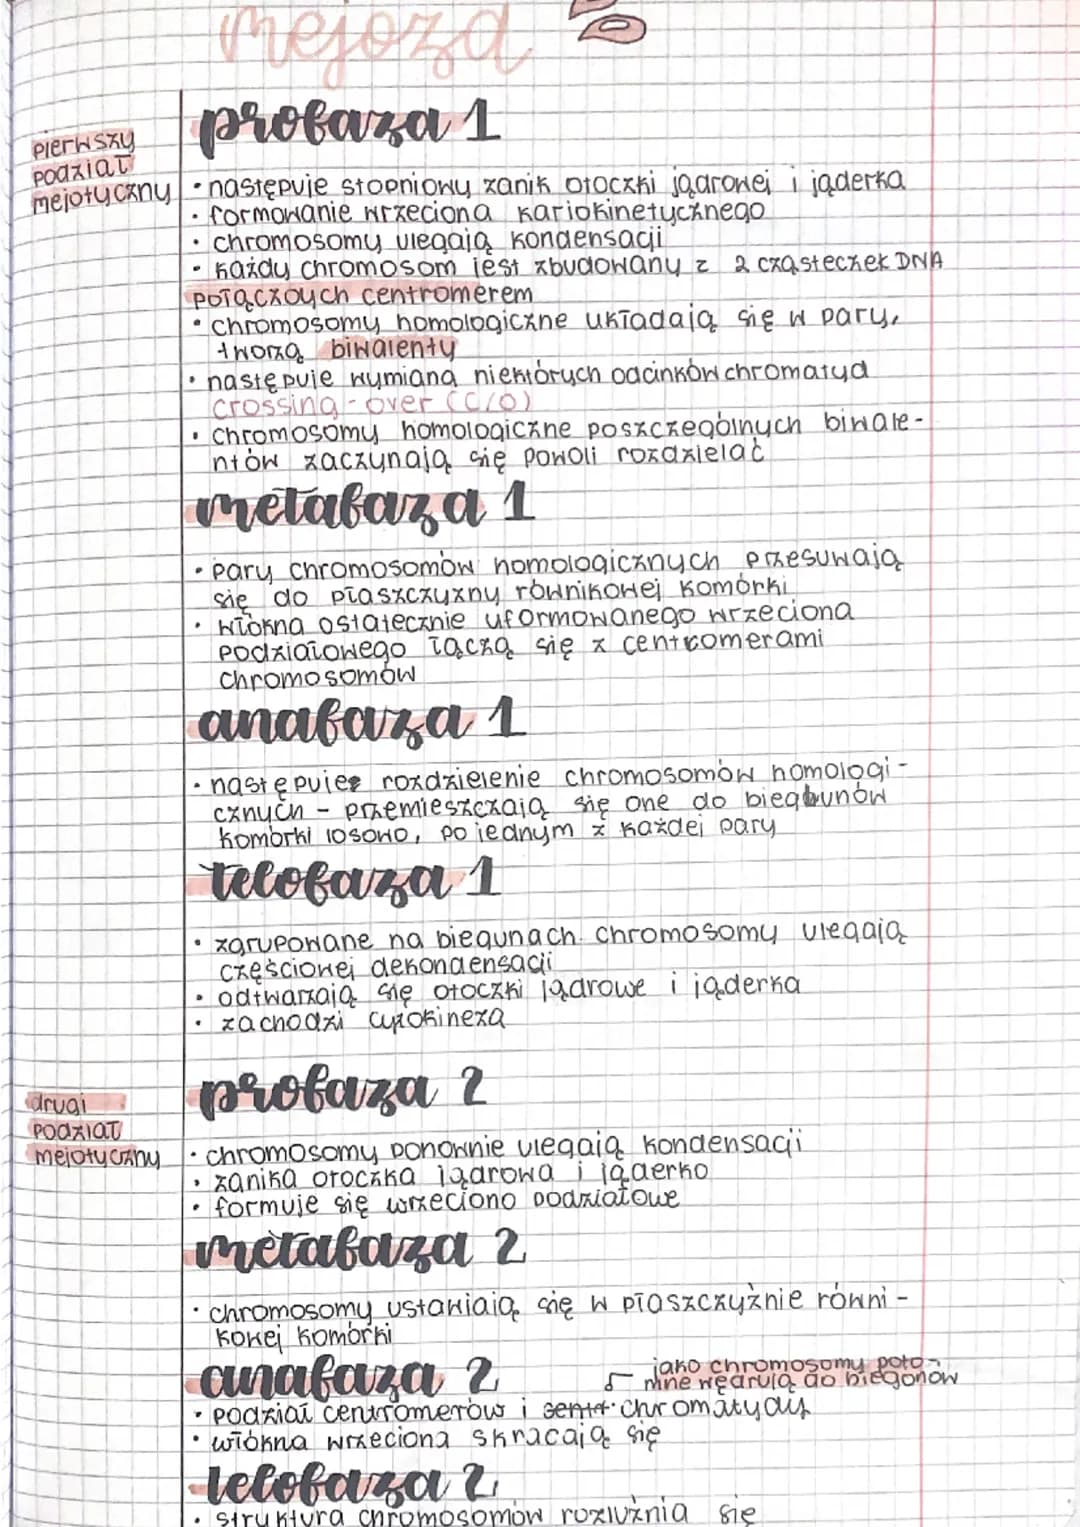 mejoza
pierwszy
podział
mejotyczny
profaza 1
• następuje stopniowy zanik otoczki jądrowej i jąderka
• formowanie wrzeciona kariokinetycznego
• chromosomy ulegają kondensacji
• każdy chromosom jest zbudowany z 2 cząsteczek DNA
połączoych centromerem
• chromosomy homologiczne układają się w pary,
tworzą biwalenty
• następuje wymiana niektórych odcinków chromatyd
crossing-over (c/o)
• chromosomy homologiczne poszczególnych biwale-
ntów zaczynają się powoli rozdzielać
metafaza 1
• pary chromosomów homologicznych przesuwają
się do płaszczyzny równikowej komórki
• włókna ostatecznie uformowanego wrzeciona
podziałowego łączą się z centromerami
chromosomów
anafaza 1
• następuje rozdzielenie chromosomów homologi-
cznych - przemieszczają się one do biegunów
komórki losowo, po jednym z każdej pary
telofaza 1
• zgrupowane na biegunach chromosomy ulegają
częściowej dekondensacji
• odtwarzają się otoczki jądrowe i jąderka
• zachodzi cytokineza
drugi
podział
mejotyczny
profaza 2
• chromosomy ponownie ulegają kondensacji
• zanika otoczka jądrowa i jąderko
• formuje się wrzeciono podziałowe
metafaza 2
• chromosomy ustawiają się w płaszczyźnie równi-
kowej komórki
anafaza 2
jako chromosomy poto-
mne wędrują do biegonów
• podział centromerów i chromatydy
• włókna wrzeciona skracają się
telofaza 2
• struktura chromosomów rozluźnia się